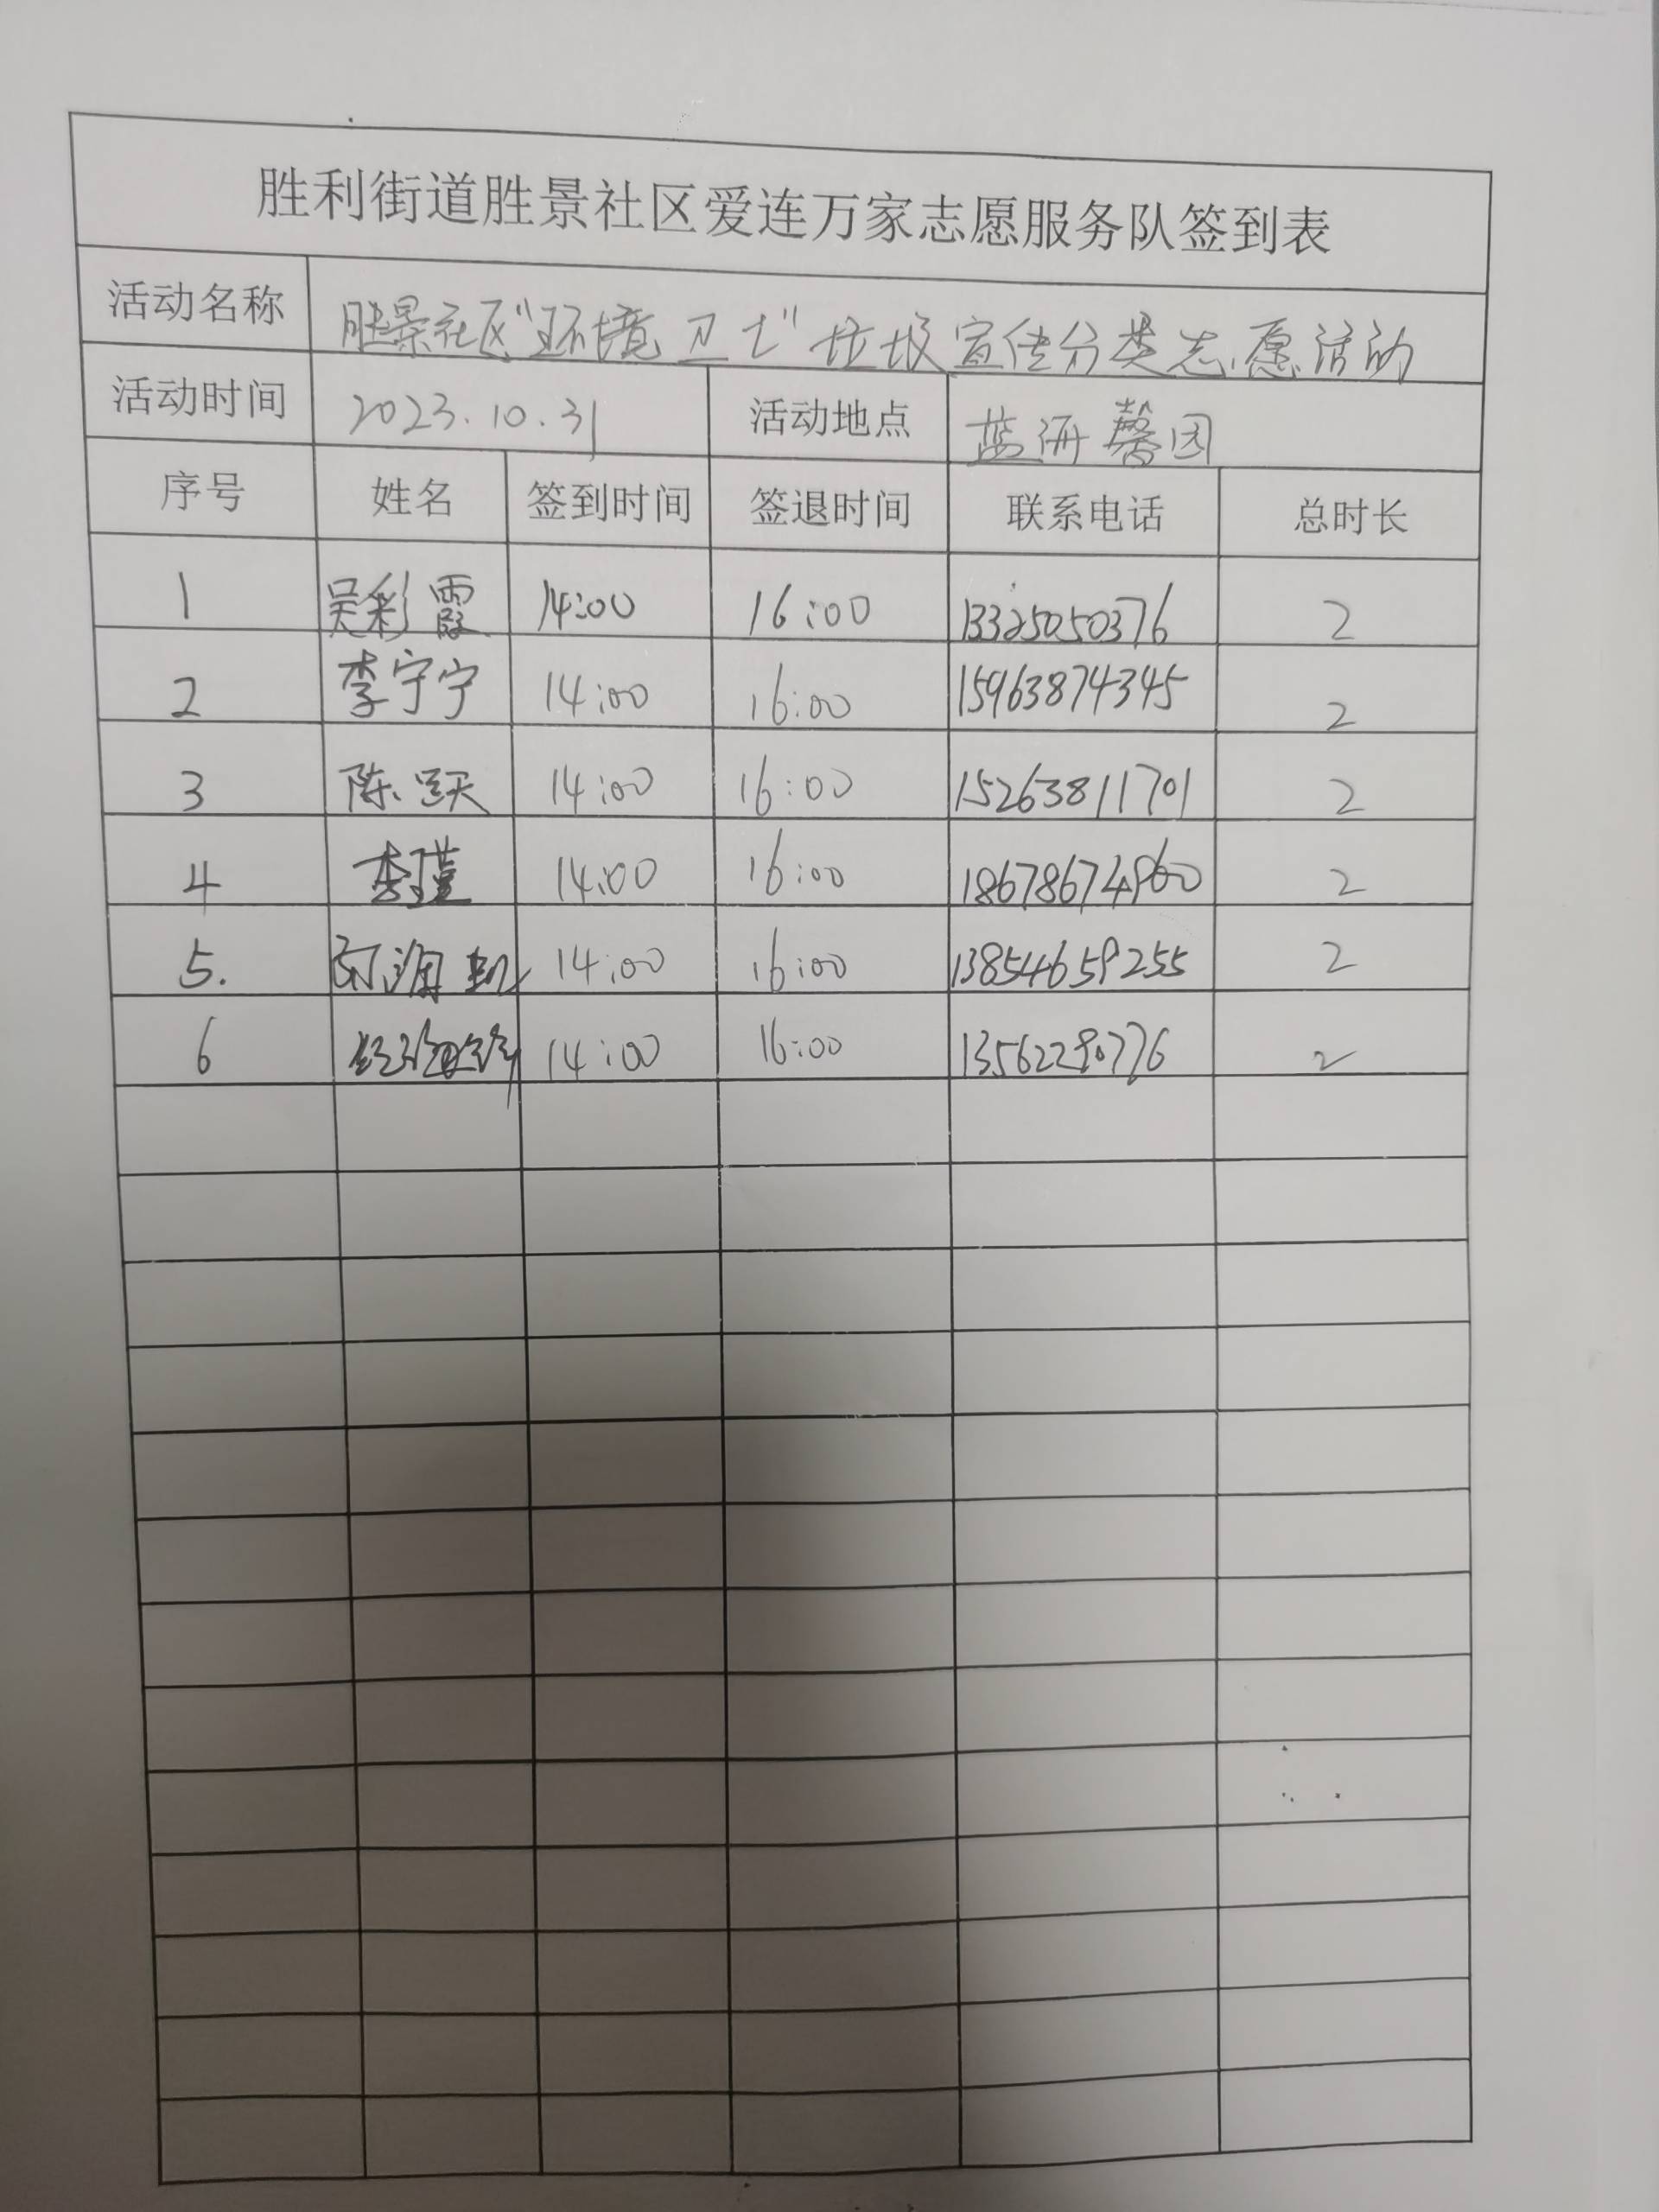 胜利街道胜景社区爱连万家志愿服务队签到表
活动名称 胜景社区"环境卫士"垃圾宣传分类志愿活动
活动时间 2023.10.31 活动地点 蓝海馨园
序号 姓名 签到时间 签退时间 联系电话 总时长
1 吴彩霞 14:00 16:00 13325050376 2
2 李宁宁 14:00 16:00 15963874345 2
3 陈跃 14:00 16:00 15263811701 2
4 李瑾 14:00 16:00 18678674960 2
5. 14:00 16:00 13854659255 2
6 14:00 16:00 2